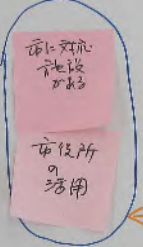 市に対応
施設
がある
市役所
の
活用